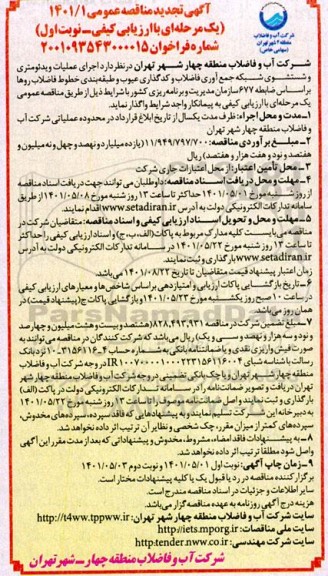 آگهی تجدید مناقصه عمومی ۱۴۰۱/۱
(یک مرحله‌ای با ارزیابی کیفی - نوبت اول)
شماره فراخوان ۲۰۰۱۰۹۳۵۴۳۰۰۰۰۱۵
شرکت آب و فاضلاب
منطقه ۴ شهر تهران
(سهامی خاص)
شرکت آب و فاضلاب منطقه چهار شهر تهران در نظر دارد اجرای عملیات ویدئومتری
و شستشوی شبکه جمع آوری فاضلاب و کدگذاری عیوب و طبقه‌بندی خطوط فاضلاب روها
بر اساس ضابطه ۶۷۷ سازمان مدیریت و برنامه‌ریزی کشور با شرایط ذیل از طریق مناقصه عمومی
یک مرحله‌ای با ارزیابی کیفی به پیمانکار واجد شرایط واگذار نماید.
۱- مدت و محل اجرا: ظرف مدت یکسال از تاریخ ابلاغ قرارداد در محدوده عملیاتی شرکت آب
و فاضلاب منطقه چهار شهر تهران
۲- مبلغ برآوردی مناقصه: ۱۱/۹۴۹/۷۹۷/۷۰۰ (یازده میلیارد و نهصد و چهل و نه میلیون و
هفتصد و نود و هفت هزار و هفتصد) ریال
۳- محل تأمین اعتبار: از محل اعتبارات جاری شرکت
۴- مهلت و محل دریافت اسناد مناقصه: داوطلبان می توانند جهت دریافت اسناد مناقصه
از روز شنبه مورخ ۱۴۰۱/۰۵/۰۱ حداکثر تا ساعت ۱۳ روز شنبه مورخ ۱۴۰۱/۰۵/۰۸ از طریق
سامانه تدارکات الکترونیکی دولت به آدرس www.setadiran.ir اقدام نمایند.
۵- مهلت و محل و تحویل اسناد ارزیابی کیفی و اسناد مناقصه: متقاضیان شرکت در
مناقصه می‌بایست کلیه مدارک مربوط به پاکات (الف، ب، ج) و اسناد ارزیابی کیفی را حداکثر
تا ساعت ۱۳ روز شنبه مورخ ۱۴۰۱/۰۵/۲۲ در سامانه تدارکات الکترونیکی دولت به آدرس
www.setadiran.ir بارگذاری و ثبت نمایند.
زمان اعتبار پیشنهاد قیمت متقاضیان تا تاریخ ۱۴۰۱/۰۸/۲۲ می‌باشد.
۶- تاریخ بازگشایی پاکات ارزیابی و امتیازدهی بر اساس شاخص‌ها و معیارهای ارزیابی کیفی
در ساعت ۱۰ صبح روز یکشنبه مورخ ۱۴۰۱/۰۵/۲۳ و بازگشایی پاکات ج (پیشنهاد قیمت) در
همان روز می‌باشد.
۷- مبلغ تضمین شرکت در مناقصه ۸۲۸,۴۹۳,۹۳۱ (هشتصد و بیست و هشت میلیون و چهارصد
و نود و سه هزار و نهصد و سی و یک) ریال می‌باشد که شرکت کنندگان در مناقصه می‌توانند به
صورت فیش واریزی نقدی و یا ضمانتنامه بانکی به شماره حساب
رسالت با شناسه شبای در وجه شرکت آب و فاضلاب
منطقه چهار شهر تهران و یا چک بانکی تضمینی در وجه شرکت آب و فاضلاب منطقه چهار شهر
تهران دریافت و تصویر ضمانتنامه را در سامانه تدارکات الکترونیکی دولت در پاکت (الف)
بارگذاری و ثبت نمایند و اصل ضمانتنامه را تا ساعت ۱۳ روز شنبه مورخ ۱۴۰۱/۰۵/۲۲
به دبیرخانه این شرکت تسلیم نمایند و به پیشنهادهایی که فاقد سپرده، سپرده‌های مخدوش،
سپرده‌های کمتر از میزان مقرر، چک شخصی و نظایر آن ترتیب اثر داده نخواهد شد.
۸- به پیشنهادات فاقد امضاء، مشروط، مخدوش و پیشنهاداتی که بعد از مدت مقرر این آگهی
واصل شود مطلقا ترتیب اثر داده نخواهد شد.
۹- زمان چاپ آگهی: نوبت اول ۱۴۰۱/۰۵/۰۱ و نوبت دوم ۱۴۰۱/۰۵/۰۳
برگزار کننده مناقصه در رد یا قبول یک یا کلیه پیشنهادات مختار است.
سایر اطلاعات و جزئیات در اسناد مناقصه مندرج است.
هزینه درج آگهی روزنامه به عهده مناقصه گزار می‌باشد.
سایت شرکت آب و فاضلاب منطقه چهار شهر تهران: http://t4ww.tpww.ir
سایت ملی مناقصات: http://iets.mporg.ir
سایت شرکت مهندسی: http:tender.nww.co.ir
شرکت آب و فاضلاب منطقه چهار - شهر تهران